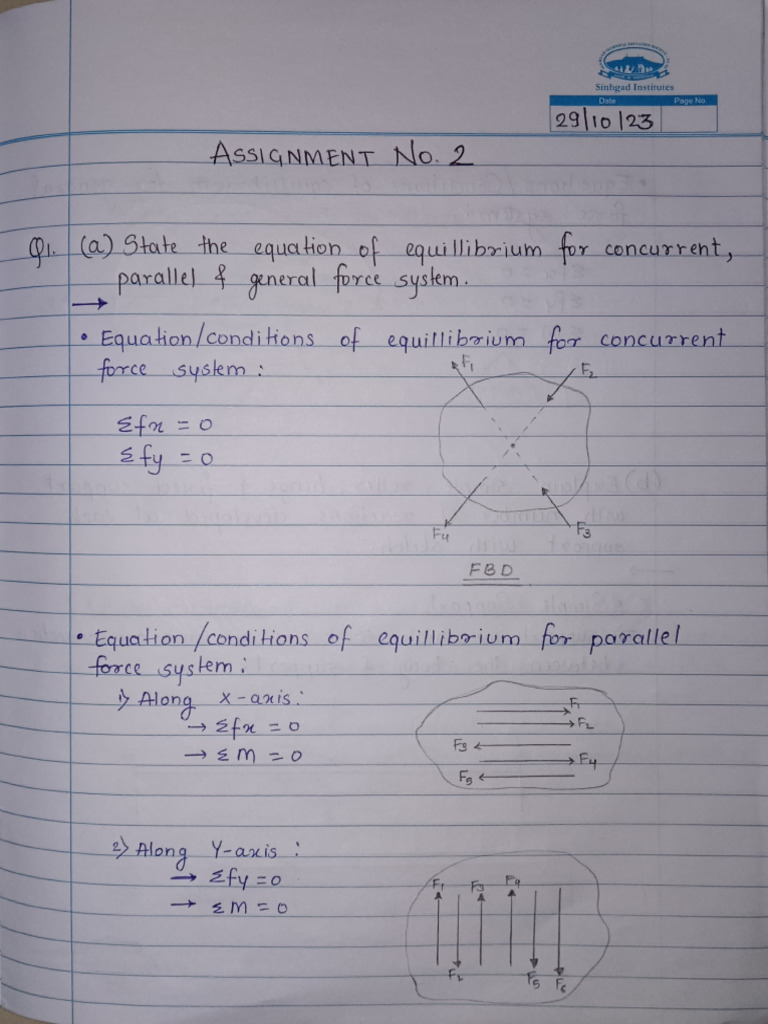 Sinhgad Institutes
Date Page No.
29/10/23
ASSIGNMENT No. 2
Q1. (a) State the equation of equillibrium for concurrent,
parallel & general force system.
→
• Equation/conditions of equillibrium for concurrent
force system :
F1 F2
Σfx = 0
Σfy = 0
F4 F3
FBD
• Equation/conditions of equillibrium for parallel
force system :
1) Along X-axis :
→ Σfx = 0
→ ΣM = 0
F1
F2
F3
F4
F5
2) Along Y-axis :
→ Σfy = 0
→ ΣM = 0
F1 F3
F5 F6